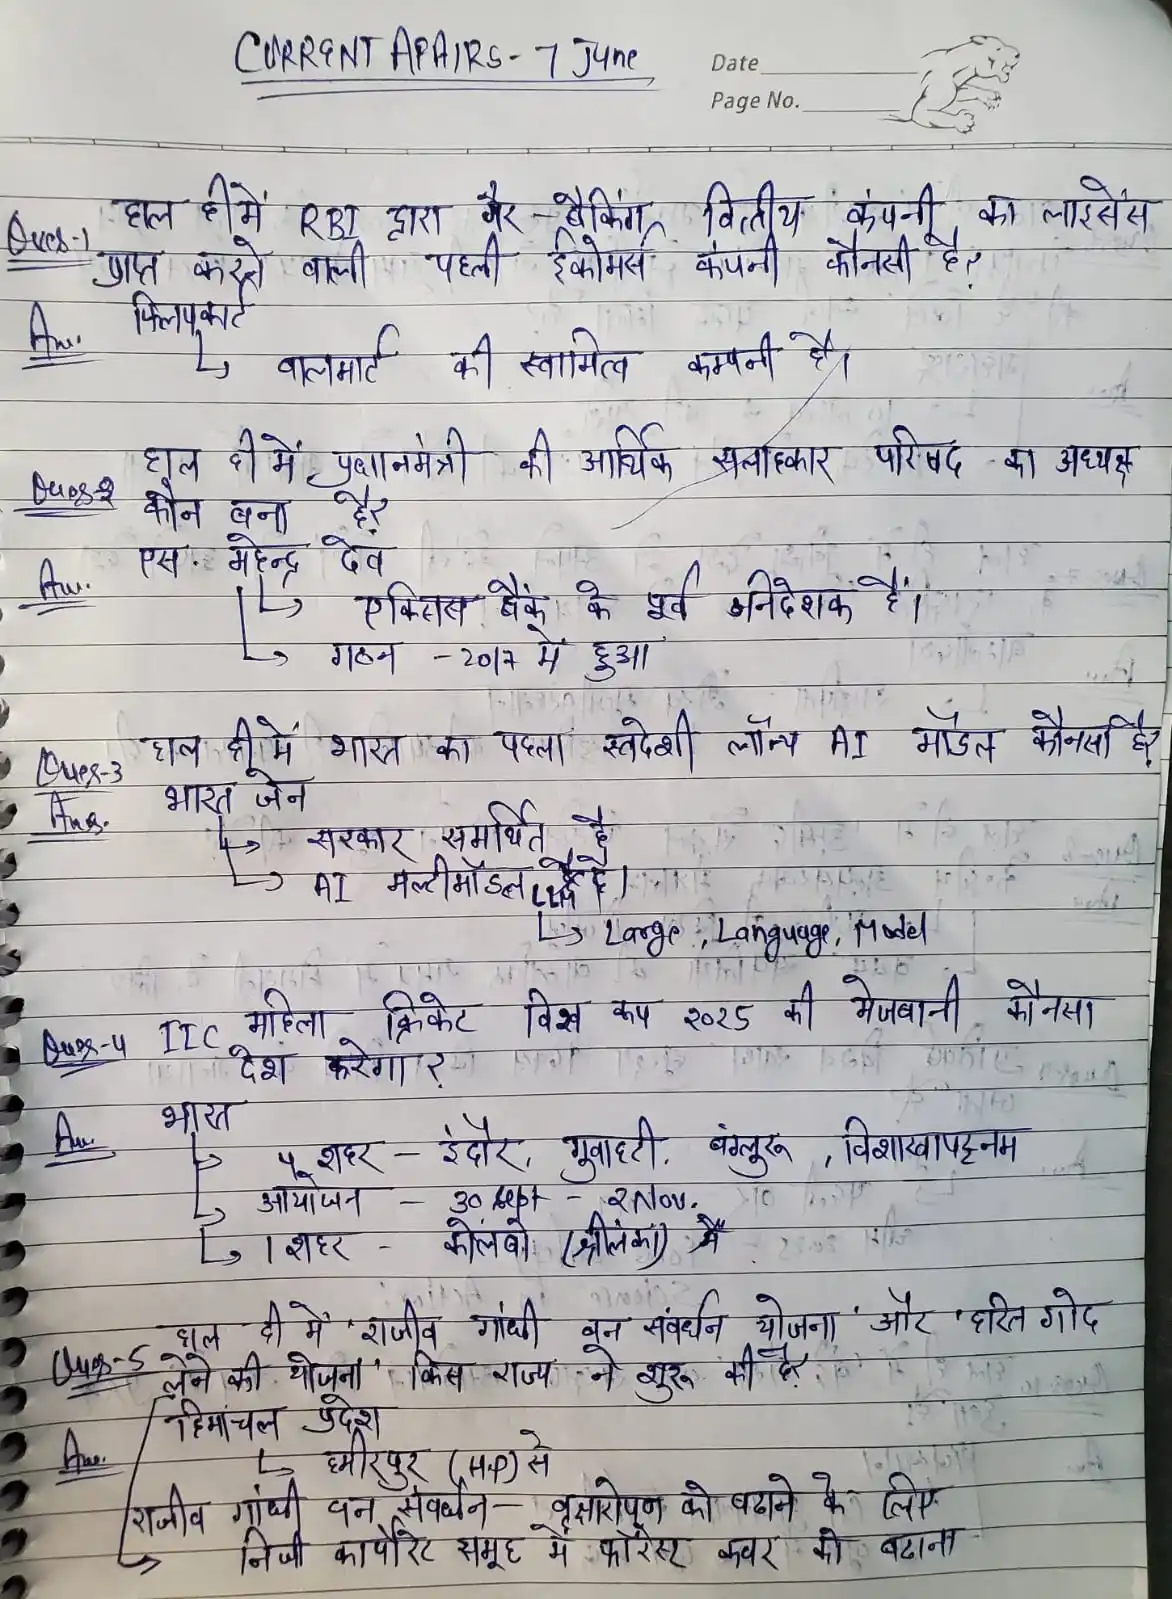 CURRENT APAIRS - 7 June
Date
Page No.
Ques-1 हाल ही में RBI द्वारा गैर-बैकिंग वित्तीय कंपनी का लाइसेंस
प्राप्त करने वाली पहली ईकोमर्स कंपनी कौनसी है?
Ans. फ्लिपकार्ट
वालमार्ट की स्वामित्व कम्पनी है।
Ques-2 हाल ही में प्रधानमंत्री की आर्थिक सलाहकार परिषद का अध्यक्ष
कौन बना है?
Ans. एस. महेन्द्र देव
एक्सिस बैंक के पूर्व निदेशक हैं।
गठन - 2017 में हुआ
Ques-3 हाल ही में भारत का पहला स्वदेशी लॉन्च AI मॉडल कौनसा है?
Ans. भारत जेन
सरकार समर्थित है
AI मल्टीमॉडल LLM है।
Large, Language, Model
Ques-4 IIC महिला क्रिकेट विश्व कप 2025 की मेजबानी कौनसा
देश करेगा?
Ans. भारत
4 शहर - इंदौर, गुवाहटी, बंग्लुरू, विशाखापट्टनम
आयोजन - 30 Sept - 2 Nov.
1 शहर - कोलंबो (श्रीलंका) में
Ques-5 हाल ही में 'राजीव गांधी वन संवर्धन योजना' और 'हरित गोद
लेने की योजना' किस राज्य ने शुरू की है?
Ans. हिमांचल प्रदेश
हमीरपुर (H.P) से
राजीव गांधी वन संवर्धन - वृक्षारोपण को बढाने के लिए
निजी कार्पोरेट समूह में फॉरेस्ट कवर को बढाना